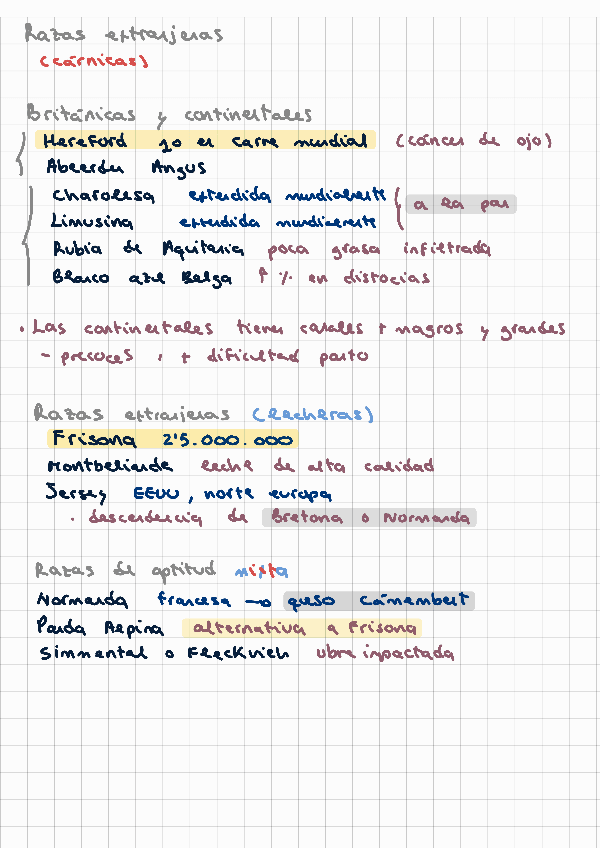 Razas extranjeras
(cárnicas)
Británicas y continentales
Hereford 1o en carne mundial (cáncer de ojo)
Abeerden Angus
Charolesa extendida mundialmente
Limusina extendida mundialmente
a la par
Rubia de Aquitania poca grasa infiltrada
Blanco azul Belga ↑ % en distocias
• Las continentales tienen canales + magros y grandes
- precoces, + dificultad parto
Razas extranjeras (lecheras)
Frisona 2'5.000.000
Montbeliarde leche de alta calidad
Jersey EEUU, norte europa
• descendencia de Bretona o Normanda
Razas de aptitud mixta
Normanda francesa → queso Camembert
Parda Alpina alternativa a Frisona
Simmental o Fleckvieh ubre impactada